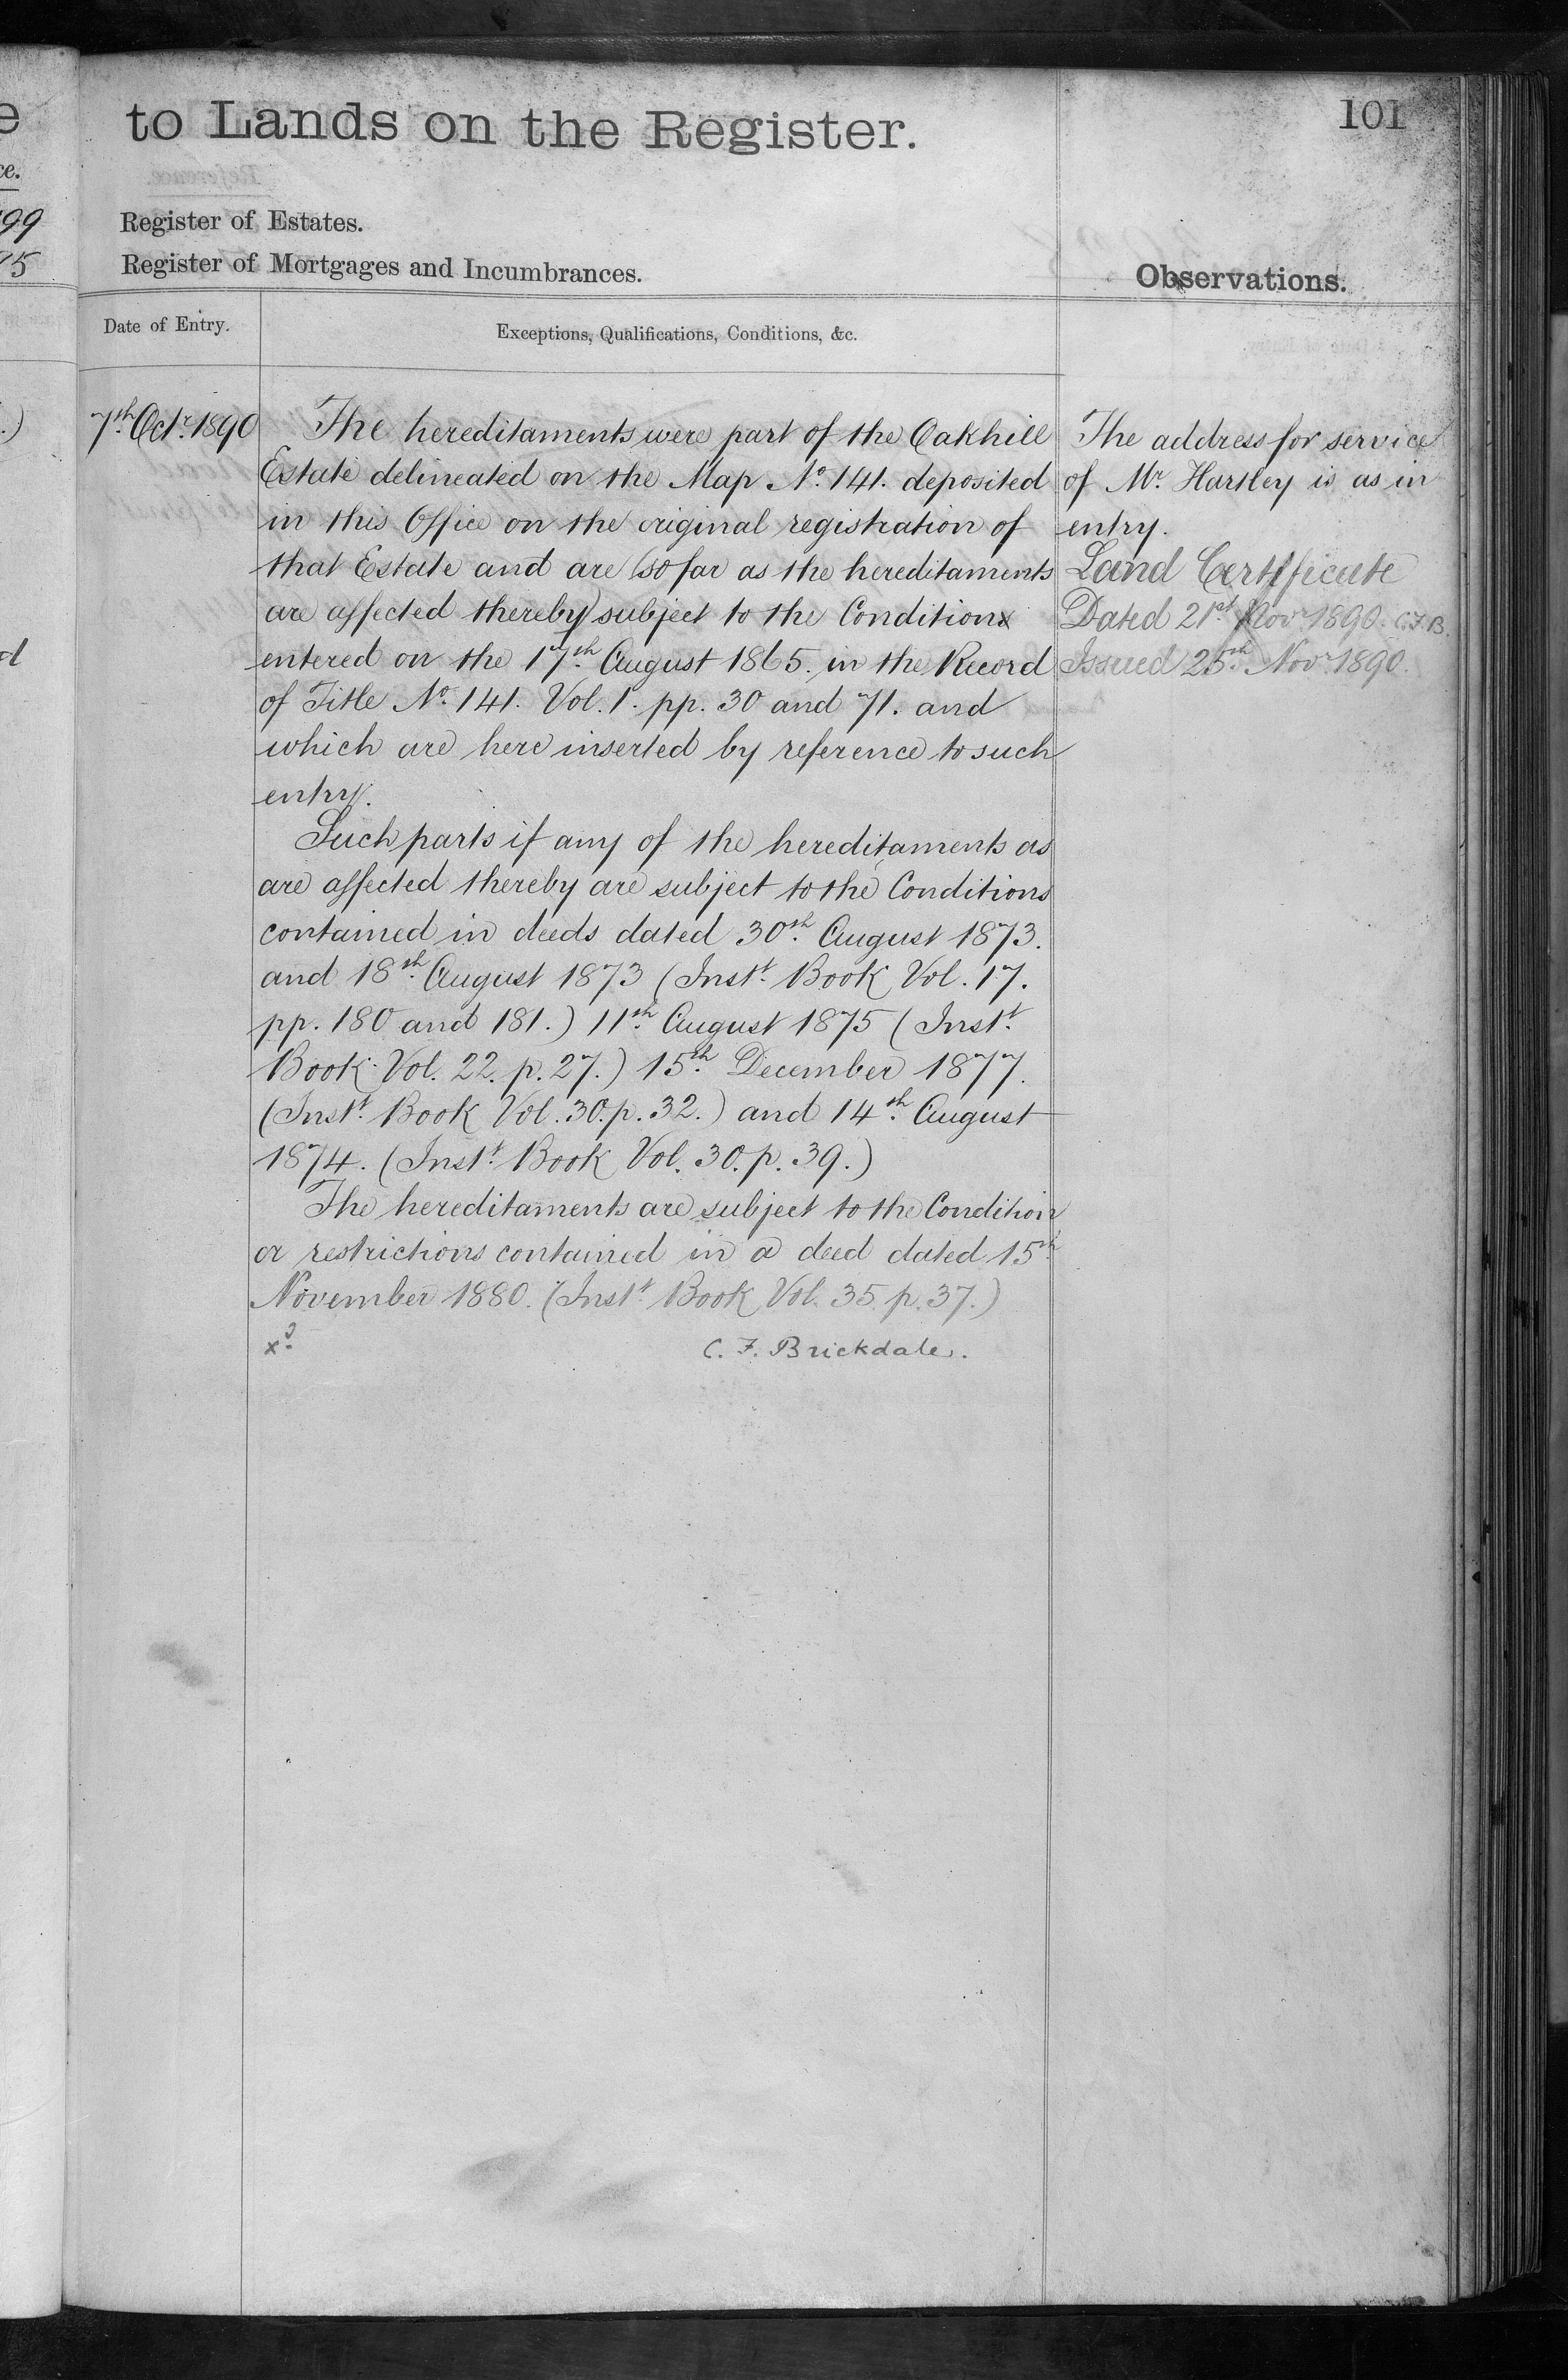 to Lands on the Register.
101
Register of Estates.
Register of Mortgages and Incumbrances.
Observations.
Date of Entry.
Exceptions, Qualifications, Conditions, &c.
7th Octr. 1890
The hereditaments were part of the Oakhill
Estate delineated on the Map No. 141. deposited
in this Office on the original registration of
that Estate and are (so far as the hereditaments
are affected thereby) subject to the Conditions
entered on the 17th August 1865. in the Record
of Title No. 141. Vol. 1. pp. 30 and 71. and
which are here inserted by reference to such
entry.
Such parts if any of the hereditaments as
are affected thereby are subject to the Conditions
contained in deeds dated 30th August 1873.
and 18th August 1873 (Instt. Book Vol. 17.
pp. 180 and 181.) 11th August 1875 (Instt.
Book Vol. 22. p. 27.) 15th December 1877.
(Instt. Book Vol. 30. p. 32.) and 14th August
1874. (Instt. Book Vol. 30. p. 39.)
The hereditaments are subject to the Condition
or restrictions contained in a deed dated 15th
November 1880. (Instt. Book Vol. 35 p. 37.)
C. F. Brickdale.
The address for service
of Mr. Hartley is as in
entry.
Land Certificate
Dated 21st Novr 1890. C.F.B.
Issued 25th Novr 1890.